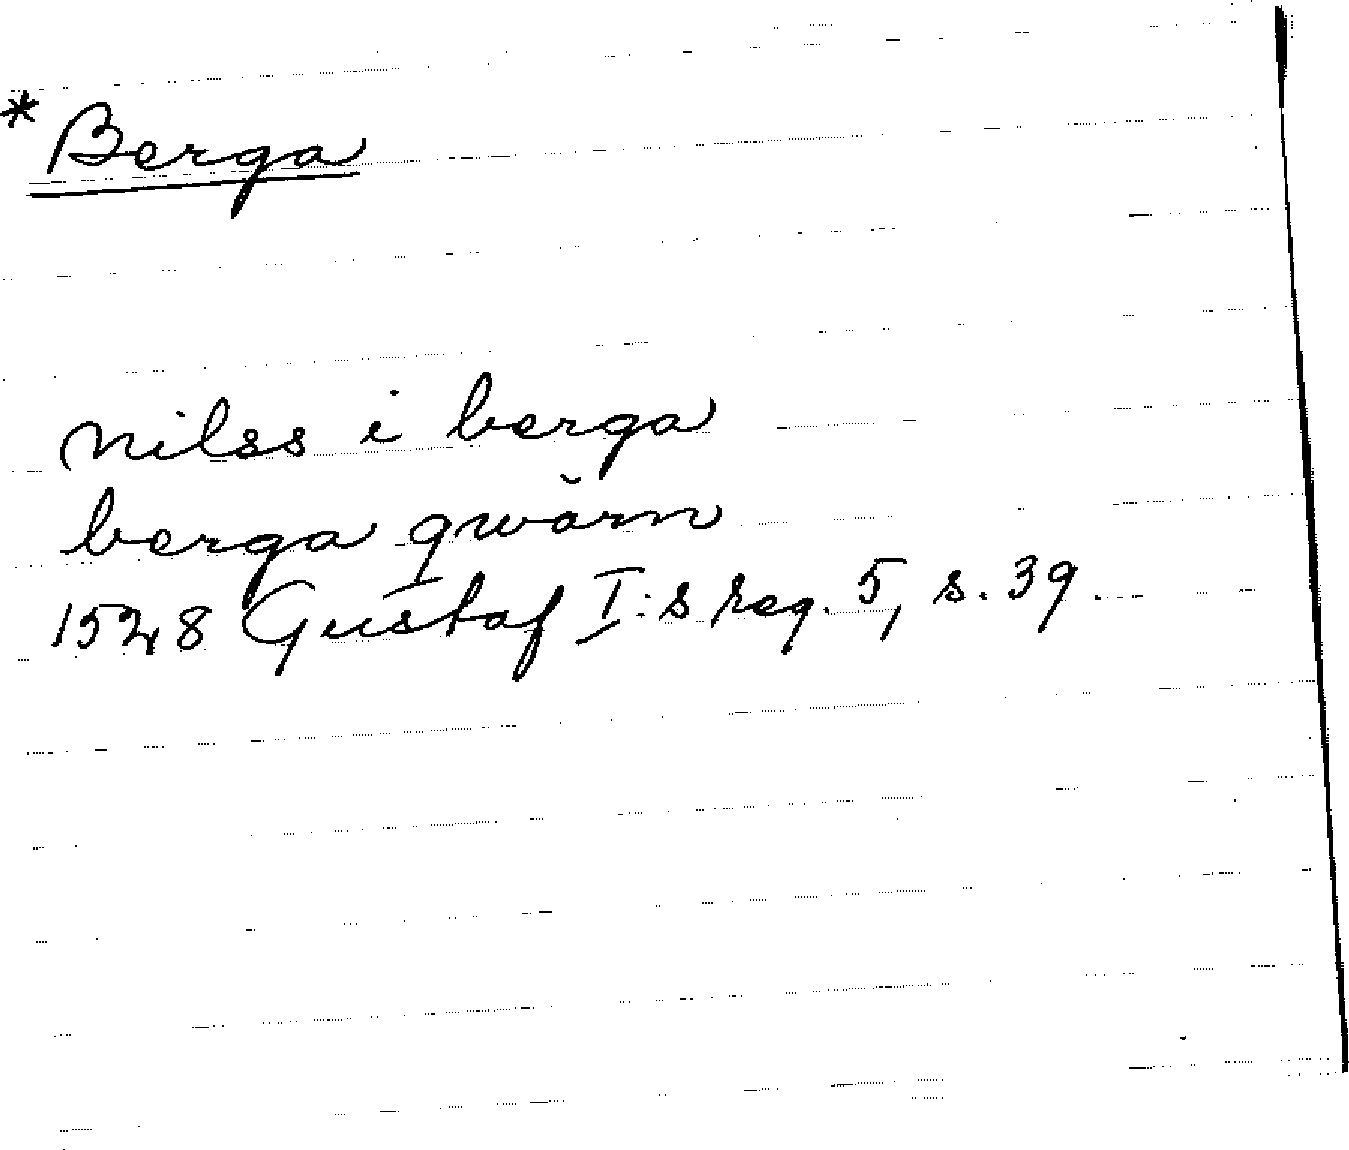 * Berga
nilss i berga
berga qwărn
1528 Gustaf I:s reg. 5, s. 39.